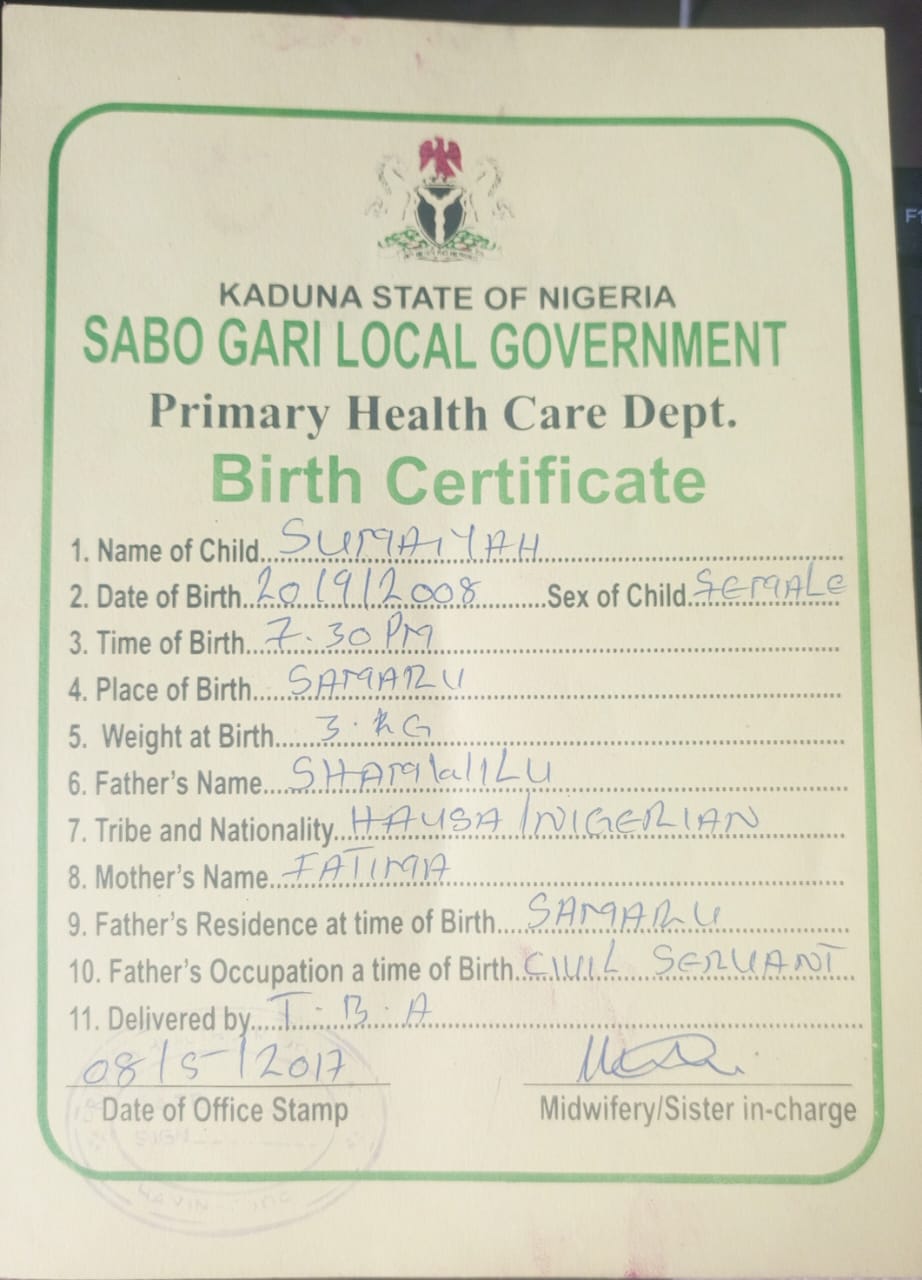 KADUNA STATE OF NIGERIA
SABO GARI LOCAL GOVERNMENT
Primary Health Care Dept.
Birth Certificate
1. Name of Child...SUMAIYAH
2. Date of Birth...20/9/2008...Sex of Child...FEMALE
3. Time of Birth...7.30 PM
4. Place of Birth...SAMARU
5. Weight at Birth...3.KG
6. Father's Name...
7. Tribe and Nationality...HAUSA/NIGERIAN
8. Mother's Name...FATIMA
9. Father's Residence at time of Birth...SAMARU
10. Father's Occupation a time of Birth...CIVIL SERVANT
11. Delivered by...T.B.A
08/5/2017
Date of Office Stamp
Midwifery/Sister in-charge
SIGN
F1